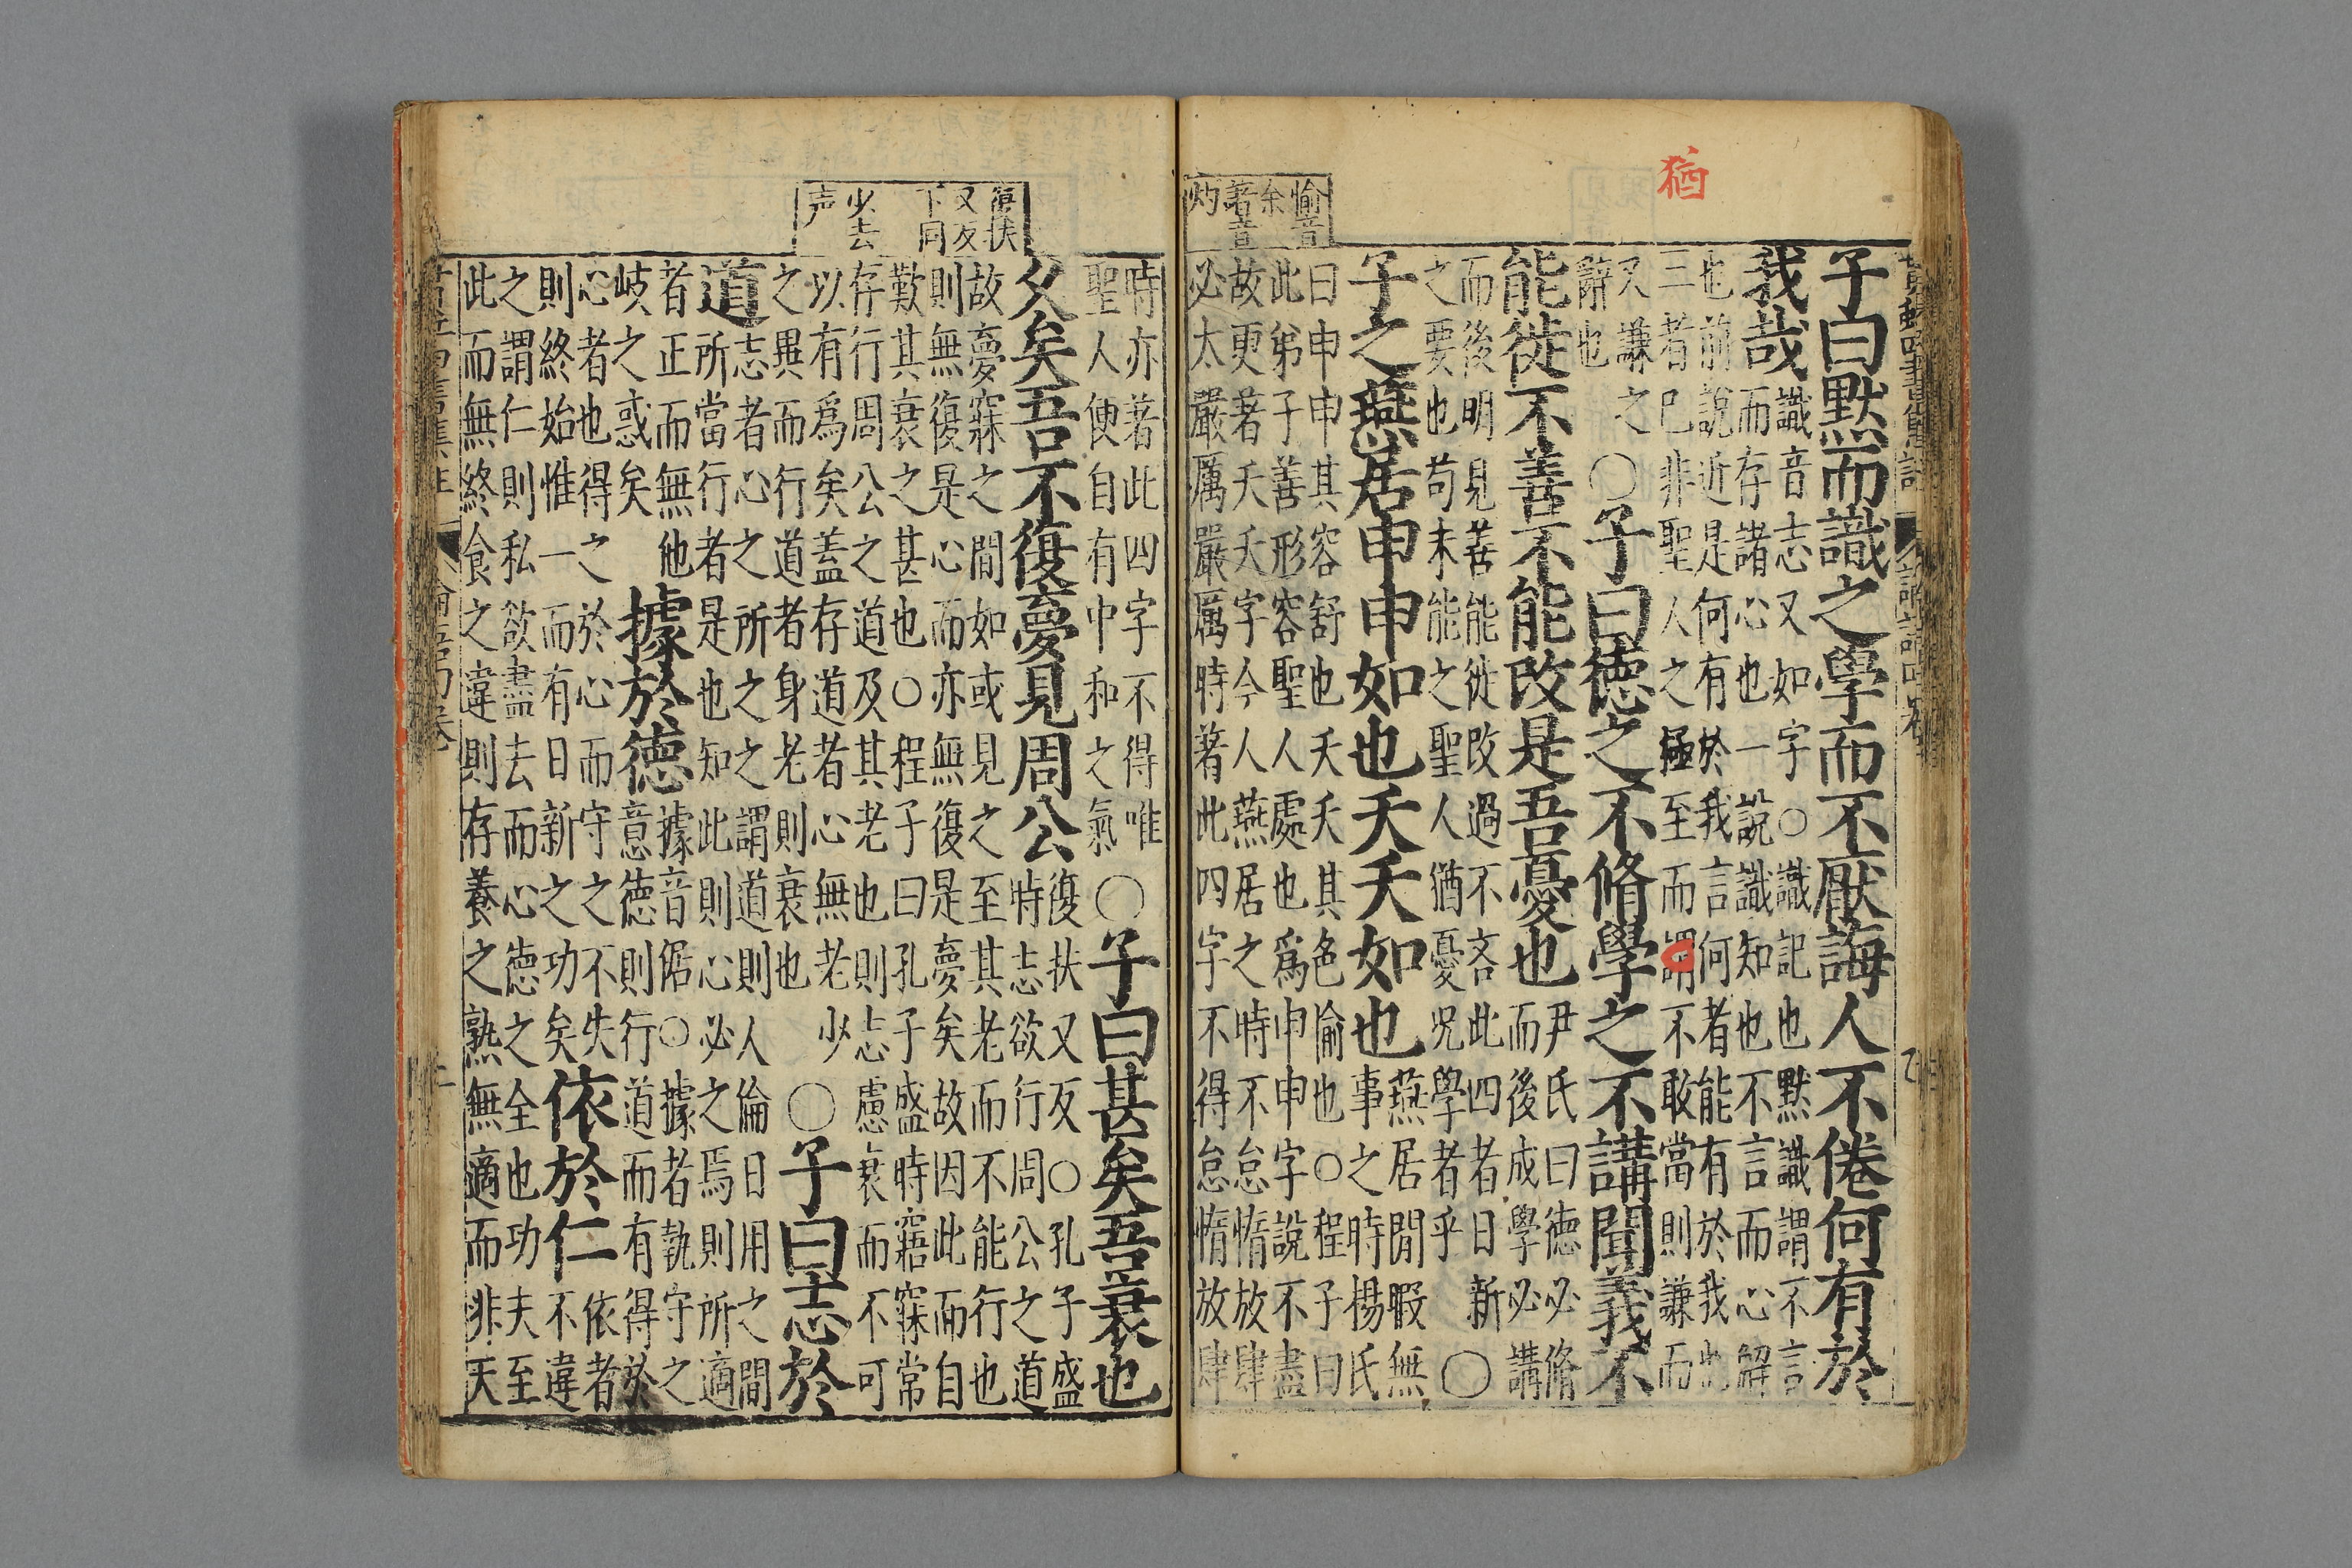 猶
子曰默而識之學而不厭誨人不倦何有於
我哉
識音志又如字○識記也默識謂不言
而存諸心也一說識知也不言而心解
也前說近是何有於我言何者能有於我也
三者已非聖人之極至而謂不敢當則謙而
又謙之
辭也
○子曰德之不脩學之不講聞義不
能徙不善不能改是吾憂也
尹氏曰德必脩
而後成學必講
而後明見善能徙改過不吝此四者日新
之要也苟未能之聖人猶憂况學者乎
○
子之燕居申申如也夭夭如也
燕居閒暇無
事之時楊氏
愉音
余
著音
灼
曰申申其容舒也夭夭其色愉也○程子曰
此弟子善形容聖人處也爲申申字說不盡
故更著夭夭字今人燕居之時不怠惰放肆
必太嚴厲嚴厲時著此四字不得怠惰放肆
時亦著此四字不得唯
聖人便自有中和之氣
○子曰甚矣吾衰也
久矣吾不復夢見周公
復扶又反○孔子盛
時志欲行周公之道
復扶
又反
下同
少去
声
故夢寐之間如或見之至其老而不能行也
則無復是心而亦無復是夢矣故因此而自
歎其衰之甚也○程子曰孔子盛時寤寐常
存行周公之道及其老也則志慮衰而不可
以有爲矣盖存道者心無老少
之異而行道者身老則衰也
○子曰志於
道
志者心之所之之謂道則人倫日用之間
所當行者是也知此則心必之焉則所適
者正而無他
岐之惑矣
據於德
據音倨○據者執守之
意德則行道而有得於
心者也得之於心而守之不失
則終始惟一而有日新之功矣
依於仁
依者
不違
之謂仁則私欲盡去而心德之全也功夫至
此而無終食之違則存養之熟無適而非天